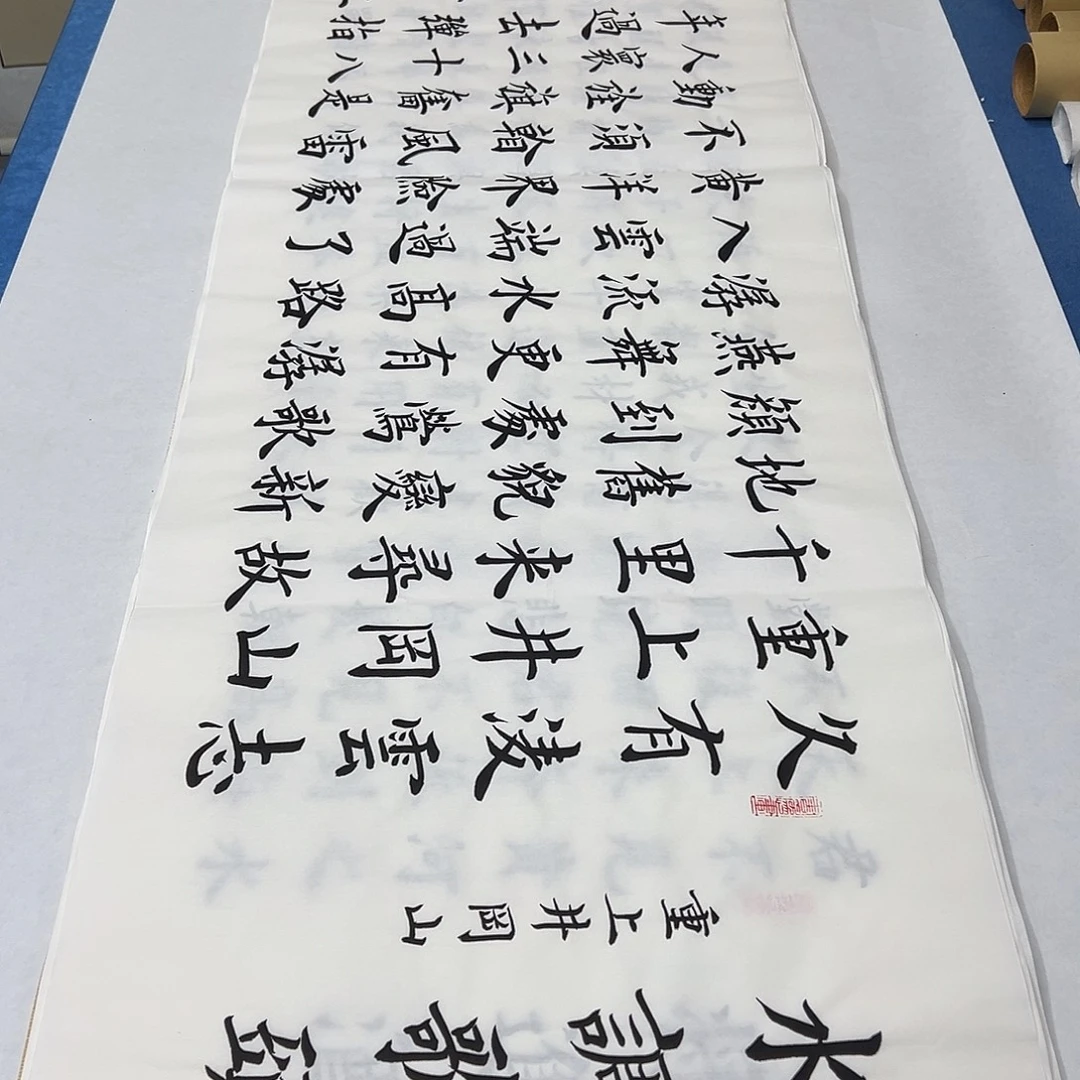 水調歌頭
重上井岡山
久有凌雲志
重上井岡山
千里来尋故
地舊貌變新
顔到處鶯歌
燕舞更有潺
潺流水高路
入雲端過了
黄洋界險處
不須看風雷
動旌旗奮是
人寰三十八
年過去彈指